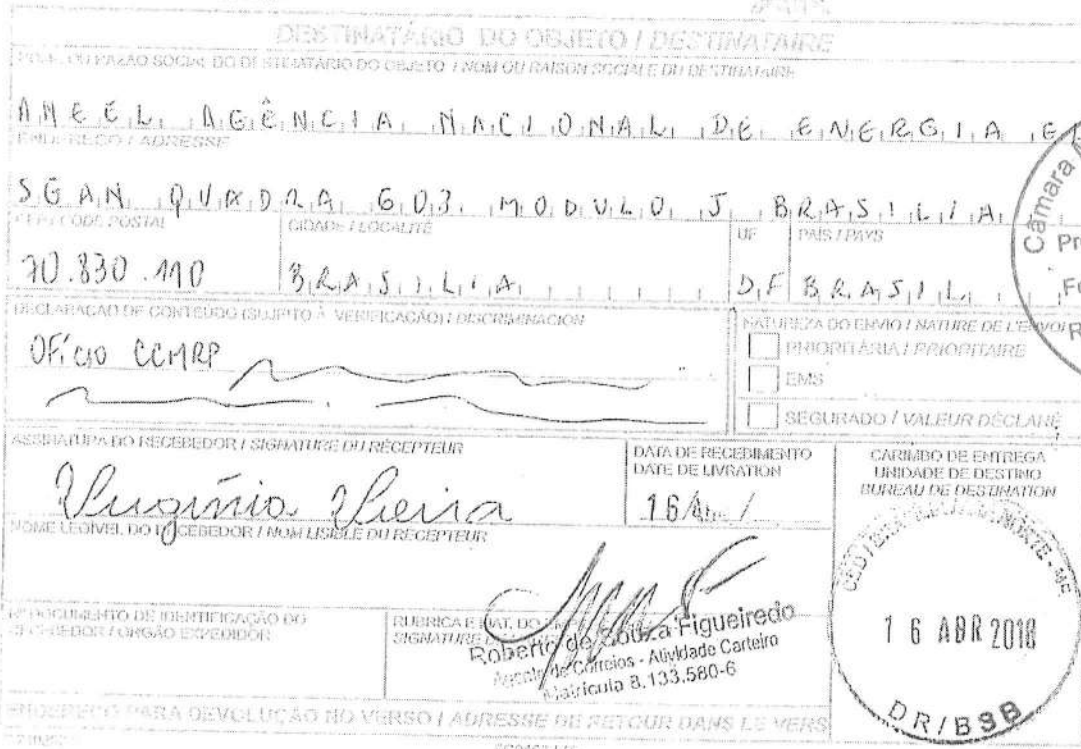 DESTINATÁRIO DO OBJETO / DESTINATAIRE
NOME OU RAZÃO SOCIAL DO DESTINATÁRIO DO OBJETO / NOM OU RAISON SOCIALE DU DESTINATAIRE
ANEEL AGÊNCIA NACIONAL DE ENERGIA EL
ENDEREÇO / ADRESSE
SGAN QUADRA 603 MODULO J BRASILIA
CEP / CODE POSTAL
CIDADE / LOCALITÉ
UF
PAÍS / PAYS
70.830.110
BRASILIA
DF
BRASIL
Câmara
DECLARAÇÃO DE CONTEÚDO (SUJEITO À VERIFICAÇÃO) / DISCRIMINACION
NATUREZA DO ENVIO / NATURE DE L'ENVOI
OFÍCIO CCMRP
PRIORITÁRIA / PRIORITAIRE
EMS
SEGURADO / VALEUR DÉCLARÉ
ASSINATURA DO RECEBEDOR / SIGNATURE DU RÉCEPTEUR
DATA DE RECEBIMENTO
DATE DE LIVRATION
CARIMBO DE ENTREGA
UNIDADE DE DESTINO
BUREAU DE DESTINATION
Virgínia Vieira
16/Abr/
NOME LEGÍVEL DO RECEBEDOR / NOM LISIBLE DU RÉCEPTEUR
Nº DOCUMENTO DE IDENTIFICAÇÃO DO
RECEBEDOR / ÓRGÃO EXPEDIDOR
RUBRICA E MAT. DO
SIGNATURE
Roberto de Souza Figueiredo
Agente de Correios - Atividade Carteiro
Matrícula 8.133.580-6
NORTE
16 ABR 2018
DR/BSB
ENDEREÇO PARA DEVOLUÇÃO NO VERSO / ADRESSE DE RETOUR DANS LE VERS